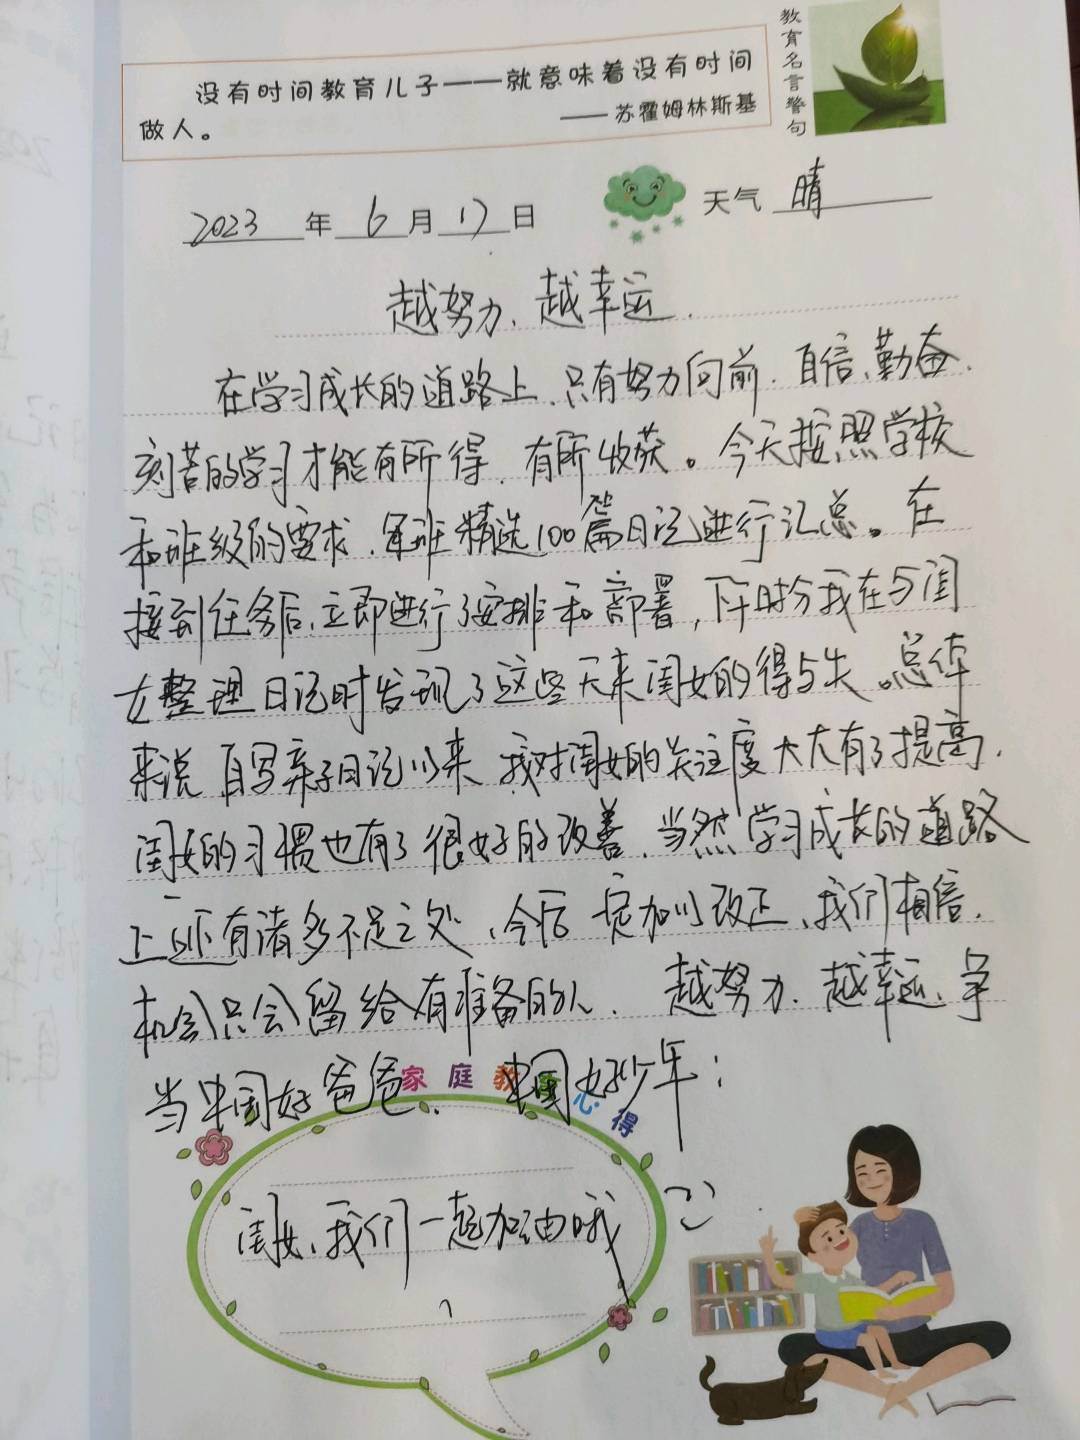 教育名言警句
没有时间教育儿子——就意味着没有时间
做人。
——苏霍姆林斯基
2023年6月17日
天气 晴
越努力、越幸运.
在学习成长的道路上、只有努力向前.自信、勤奋、
刻苦的学习才能有所得、有所收获。今天按照学校
和班级的要求、每班精选100篇日记进行汇总。在
接到任务后、立即进行了安排和部署,下午时分我在与闺
女整理日记时发现了这些天来闺女的得与失。总体
来说 自写亲子日记以来 我对闺女的关注度大大有了提高.
闺女的习惯也有了很好的改善、当然学习成长的道路
上还有诸多不足之处、今后一定加以改正、我们相信.
机会只会留给有准备的人、越努力、越幸运、争
当中国好爸爸、中国好少年:
家庭教育心得
闺女、我们一起加油哦